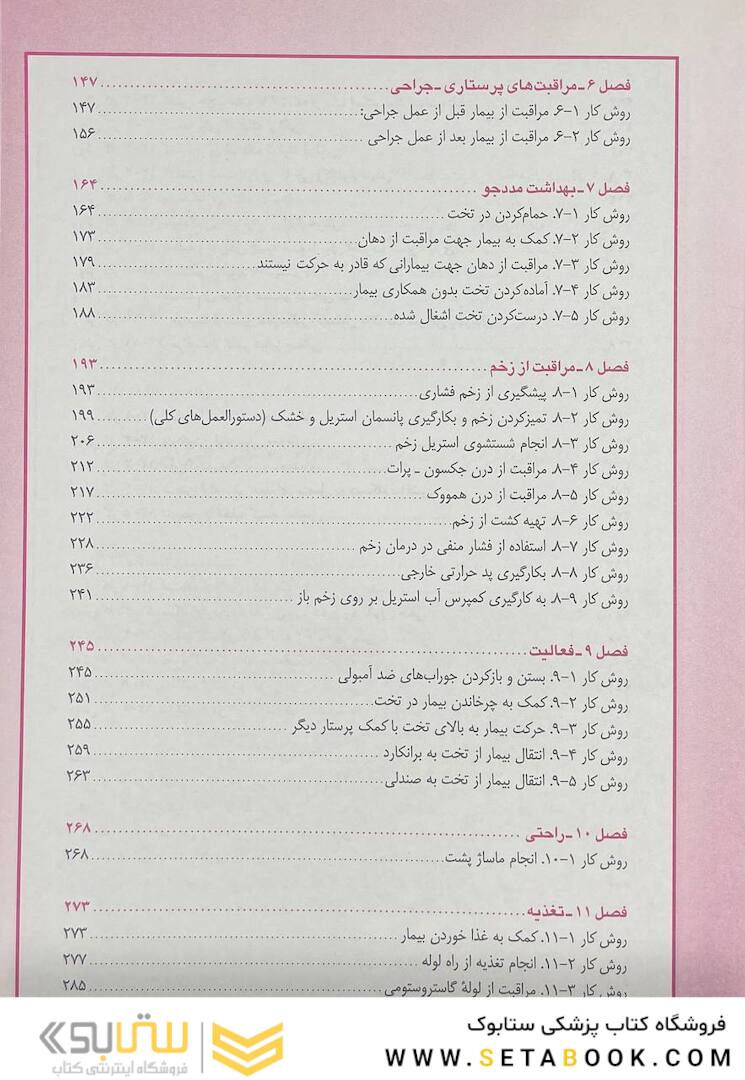 فصل ۶ـ مراقبت‌های پرستاری ـ جراحی ۱۴۷
روش کار ۱–۶. مراقبت از بیمار قبل از عمل جراحی: ۱۴۷
روش کار ۲–۶. مراقبت از بیمار بعد از عمل جراحی ۱۵۶
فصل ۷ـ بهداشت مددجو ۱۶۴
روش کار ۱–۷. حمام‌کردن در تخت ۱۶۴
روش کار ۲–۷. کمک به بیمار جهت مراقبت از دهان ۱۷۳
روش کار ۳–۷. مراقبت از دهان جهت بیمارانی که قادر به حرکت نیستند ۱۷۹
روش کار ۴–۷. آماده‌کردن تخت بدون همکاری بیمار ۱۸۳
روش کار ۵–۷. درست‌کردن تخت اشغال شده ۱۸۸
فصل ۸ـ مراقبت از زخم ۱۹۳
روش کار ۱–۸. پیشگیری از زخم فشاری ۱۹۳
روش کار ۲–۸. تمیزکردن زخم و بکارگیری پانسمان استریل و خشک (دستورالعمل‌های کلی) ۱۹۹
روش کار ۳–۸. انجام شستشوی استریل زخم ۲۰۶
روش کار ۴–۸. مراقبت از درن جکسون ـ پرات ۲۱۲
روش کار ۵–۸. مراقبت از درن همووک ۲۱۷
روش کار ۶–۸. تهیه کشت از زخم ۲۲۲
روش کار ۷–۸. استفاده از فشار منفی در درمان زخم ۲۲۸
روش کار ۸–۸. بکارگیری پد حرارتی خارجی ۲۳۶
روش کار ۹–۸. به کارگیری کمپرس آب استریل بر روی زخم باز ۲۴۱
فصل ۹ـ فعالیت ۲۴۵
روش کار ۱–۹. بستن و بازکردن جوراب‌های ضد آمبولی ۲۴۵
روش کار ۲–۹. کمک به چرخاندن بیمار در تخت ۲۵۱
روش کار ۳–۹. حرکت بیمار به بالای تخت با کمک پرستار دیگر ۲۵۵
روش کار ۴–۹. انتقال بیمار از تخت به برانکارد ۲۵۹
روش کار ۵–۹. انتقال بیمار از تخت به صندلی ۲۶۳
فصل ۱۰ـ راحتی ۲۶۸
روش کار ۱–۱۰. انجام ماساژ پشت ۲۶۸
فصل ۱۱ـ تغذیه ۲۷۳
روش کار ۱–۱۱. کمک به غذا خوردن بیمار ۲۷۳
روش کار ۲–۱۱. انجام تغذیه از راه لوله ۲۷۷
روش کار ۳–۱۱. مراقبت از لولهٔ گاستروستومی ۲۸۵
فروشگاه کتاب پزشکی ستابوک
WWW.SETABOOK.COM
ستابوک
فروشگاه اینترنتی کتاب